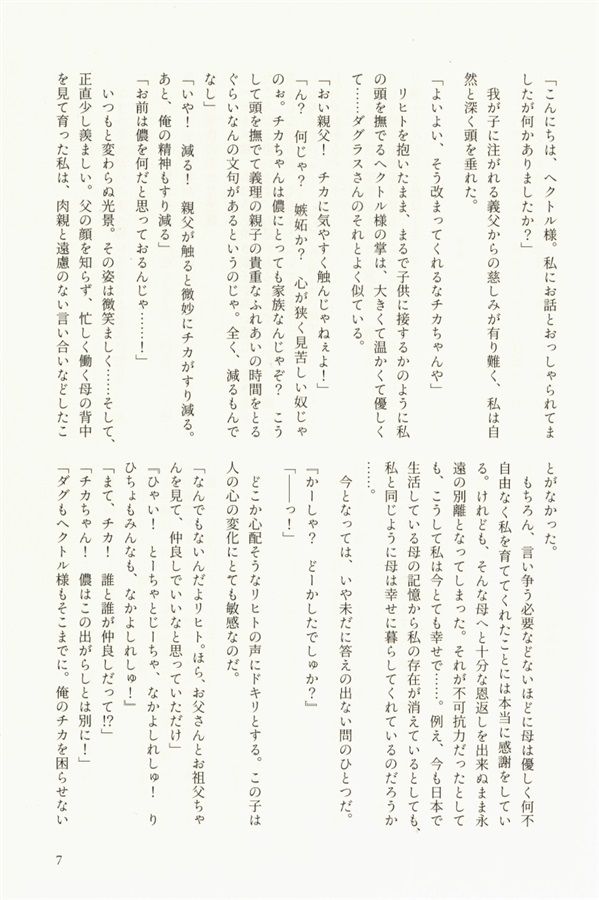 「こんにちは、ヘクトル様。私にお話とおっしゃられてま
したが何かありましたか？」
我が子に注がれる義父からの慈しみが有り難く、私は自
然と深く頭を垂れた。
「よいよい、そう改まってくれるなチカちゃんや」
リヒトを抱いたまま、まるで子供に接するかのように私
の頭を撫でるヘクトル様の掌は、大きくて温かくて優しく
て……ダグラスさんのそれとよく似ている。
「おい親父！　チカに気やすく触んじゃねぇよ！」
「ん？　何じゃ？　嫉妬か？　心が狭く見苦しい奴じゃ
のぉ。チカちゃんは儂にとっても家族なんじゃぞ？　こう
して頭を撫でて義理の親子の貴重なふれあいの時間をとる
ぐらいなんの文句があるというのじゃ。全く、減るもんで
なし」
「いや！　減る！　親父が触ると微妙にチカがすり減る。
あと、俺の精神もすり減る」
「お前は儂を何だと思っておるんじゃ……！」
いつもと変わらぬ光景。その姿は微笑ましく……そして、
正直少し羨ましい。父の顔を知らず、忙しく働く母の背中
を見て育った私は、肉親と遠慮のない言い合いなどしたこ
とがなかった。
もちろん、言い争う必要などないほどに母は優しく何不
自由なく私を育ててくれたことには本当に感謝をしてい
る。けれども、そんな母へと十分な恩返しを出来ぬまま永
遠の別離となってしまった。それが不可抗力だったとして
も、こうして私は今とても幸せで……。例え、今も日本で
生活している母の記憶から私の存在が消えているとしても、
私と同じように母は幸せに暮らしてくれているのだろうか
……。
今となっては、いや未だに答えの出ない問のひとつだ。
『かーしゃ？　どーかしたでしゅか？』
「――っ！」
どこか心配そうなリヒトの声にドキリとする。この子は
人の心の変化にとても敏感なのだ。
「なんでもないんだよリヒト。ほら、お父さんとお祖父ちゃ
んを見て、仲良しでいいなと思っていただけ」
『ひゃい！　とーちゃとじーちゃ、なかよしれしゅ！　り
ひちょもみんなも、なかよしれしゅ！』
「まて、チカ！　誰と誰が仲良しだって!?」
「チカちゃん！　儂はこの出がらしとは別に！」
「ダグもヘクトル様もそこまでに。俺のチカを困らせない
7